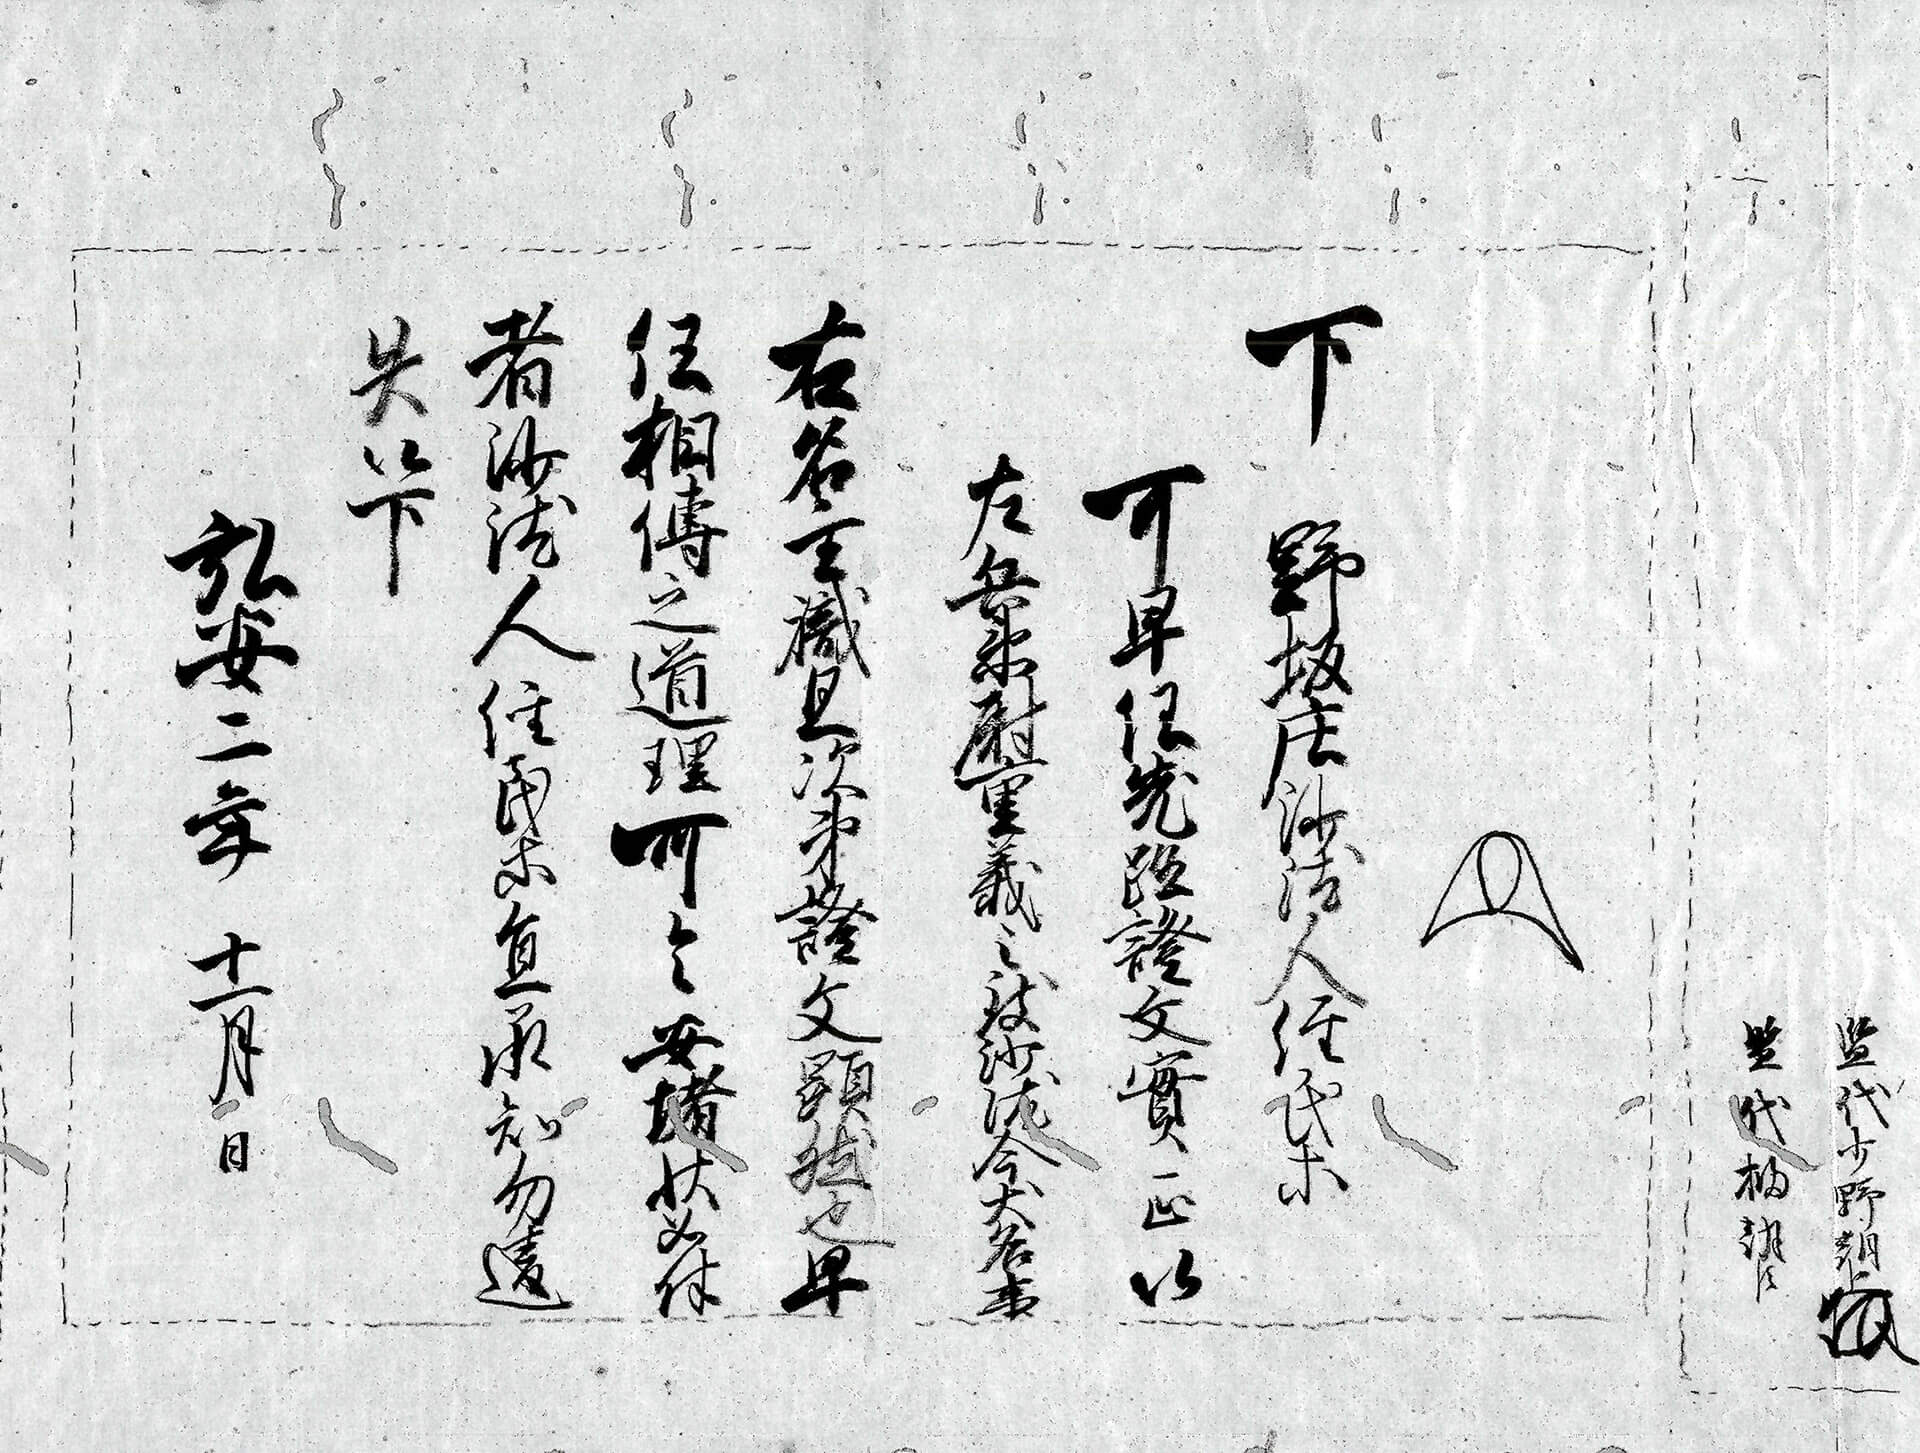 監代少野朝
監代柏朝臣
下　野坂庄沙汰人住民等
可早任先證證文實正以
左兵衛尉重義之被沙汰令大名事
右名主職且次第證文顕然也早
任相傳之道理可令安堵状如件
者沙汰人住民等宜承知勿遺
失以下
弘安二年十一月一日